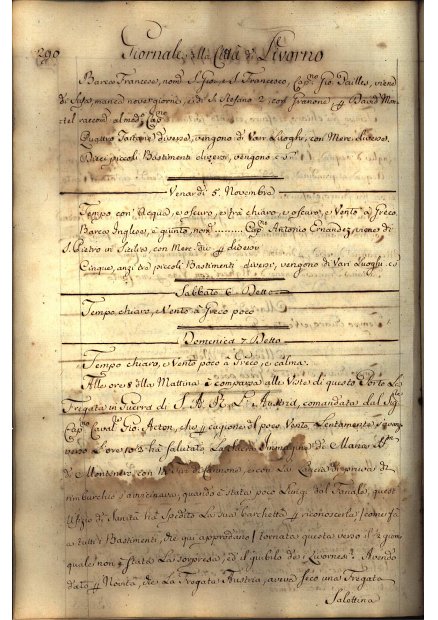 290
Giornale della Città di Livorno
Barco Francese, nom.º S. Gio: e S. Francesco, Cap.no Gio: Pailles, viene
di manca nove giorni, e di S. Stefano 2, con
racc.
Quattro Tartane diverse, vengono di Vari Luoghi, con Merc. diverse.
Dieci piccoli Bastimenti diversi, vengono
Venardì 5. Novembre
Tempo con acqua, e oscuro, e tra chiaro, e oscuro, e Vento à Greco
Barco Inglese, è giunto, nom ........ Cap.no Antonio Ernandez, viene di
S. Pietro in Sicilia, con Merc. div.e p diversi
Cinque, anzi tre piccoli Bastimenti diversi, vengono di Vari Luoghi
Sabbato 6. Detto
Tempo chiaro, e Vento à Greco poco
Domenica 7. Detto
Tempo chiaro, e Vento poco à Greco, e calma.
Alle ore 8 della Mattina è comparsa alle Viste di questo Porto La
Fregata in Guerra di S. A. R. L. Austria, comandata dal Sig.
Cap.no Caval. Gio: Acton, che p cagione del poco Vento, Lentamente
verso L'ore 10 hà salutato La Immagine di Maria
di Montenero, con di Cannone, e con La
rimburchio s'avvicinava, quando è stata poco Lungi dal Fanale, quest'
Ufizio di Sanità hà Spedito La sua barchetta p riconoscerla, come fà
a tutti i Bastimenti, che quì approdano; tornata questa verso il
quale non è stata La sorpresa, ed il giubilo de i Livornesi? Avendo
dato p Novità, che La Fregata Austria, aveva seco una Fregata
Salettina